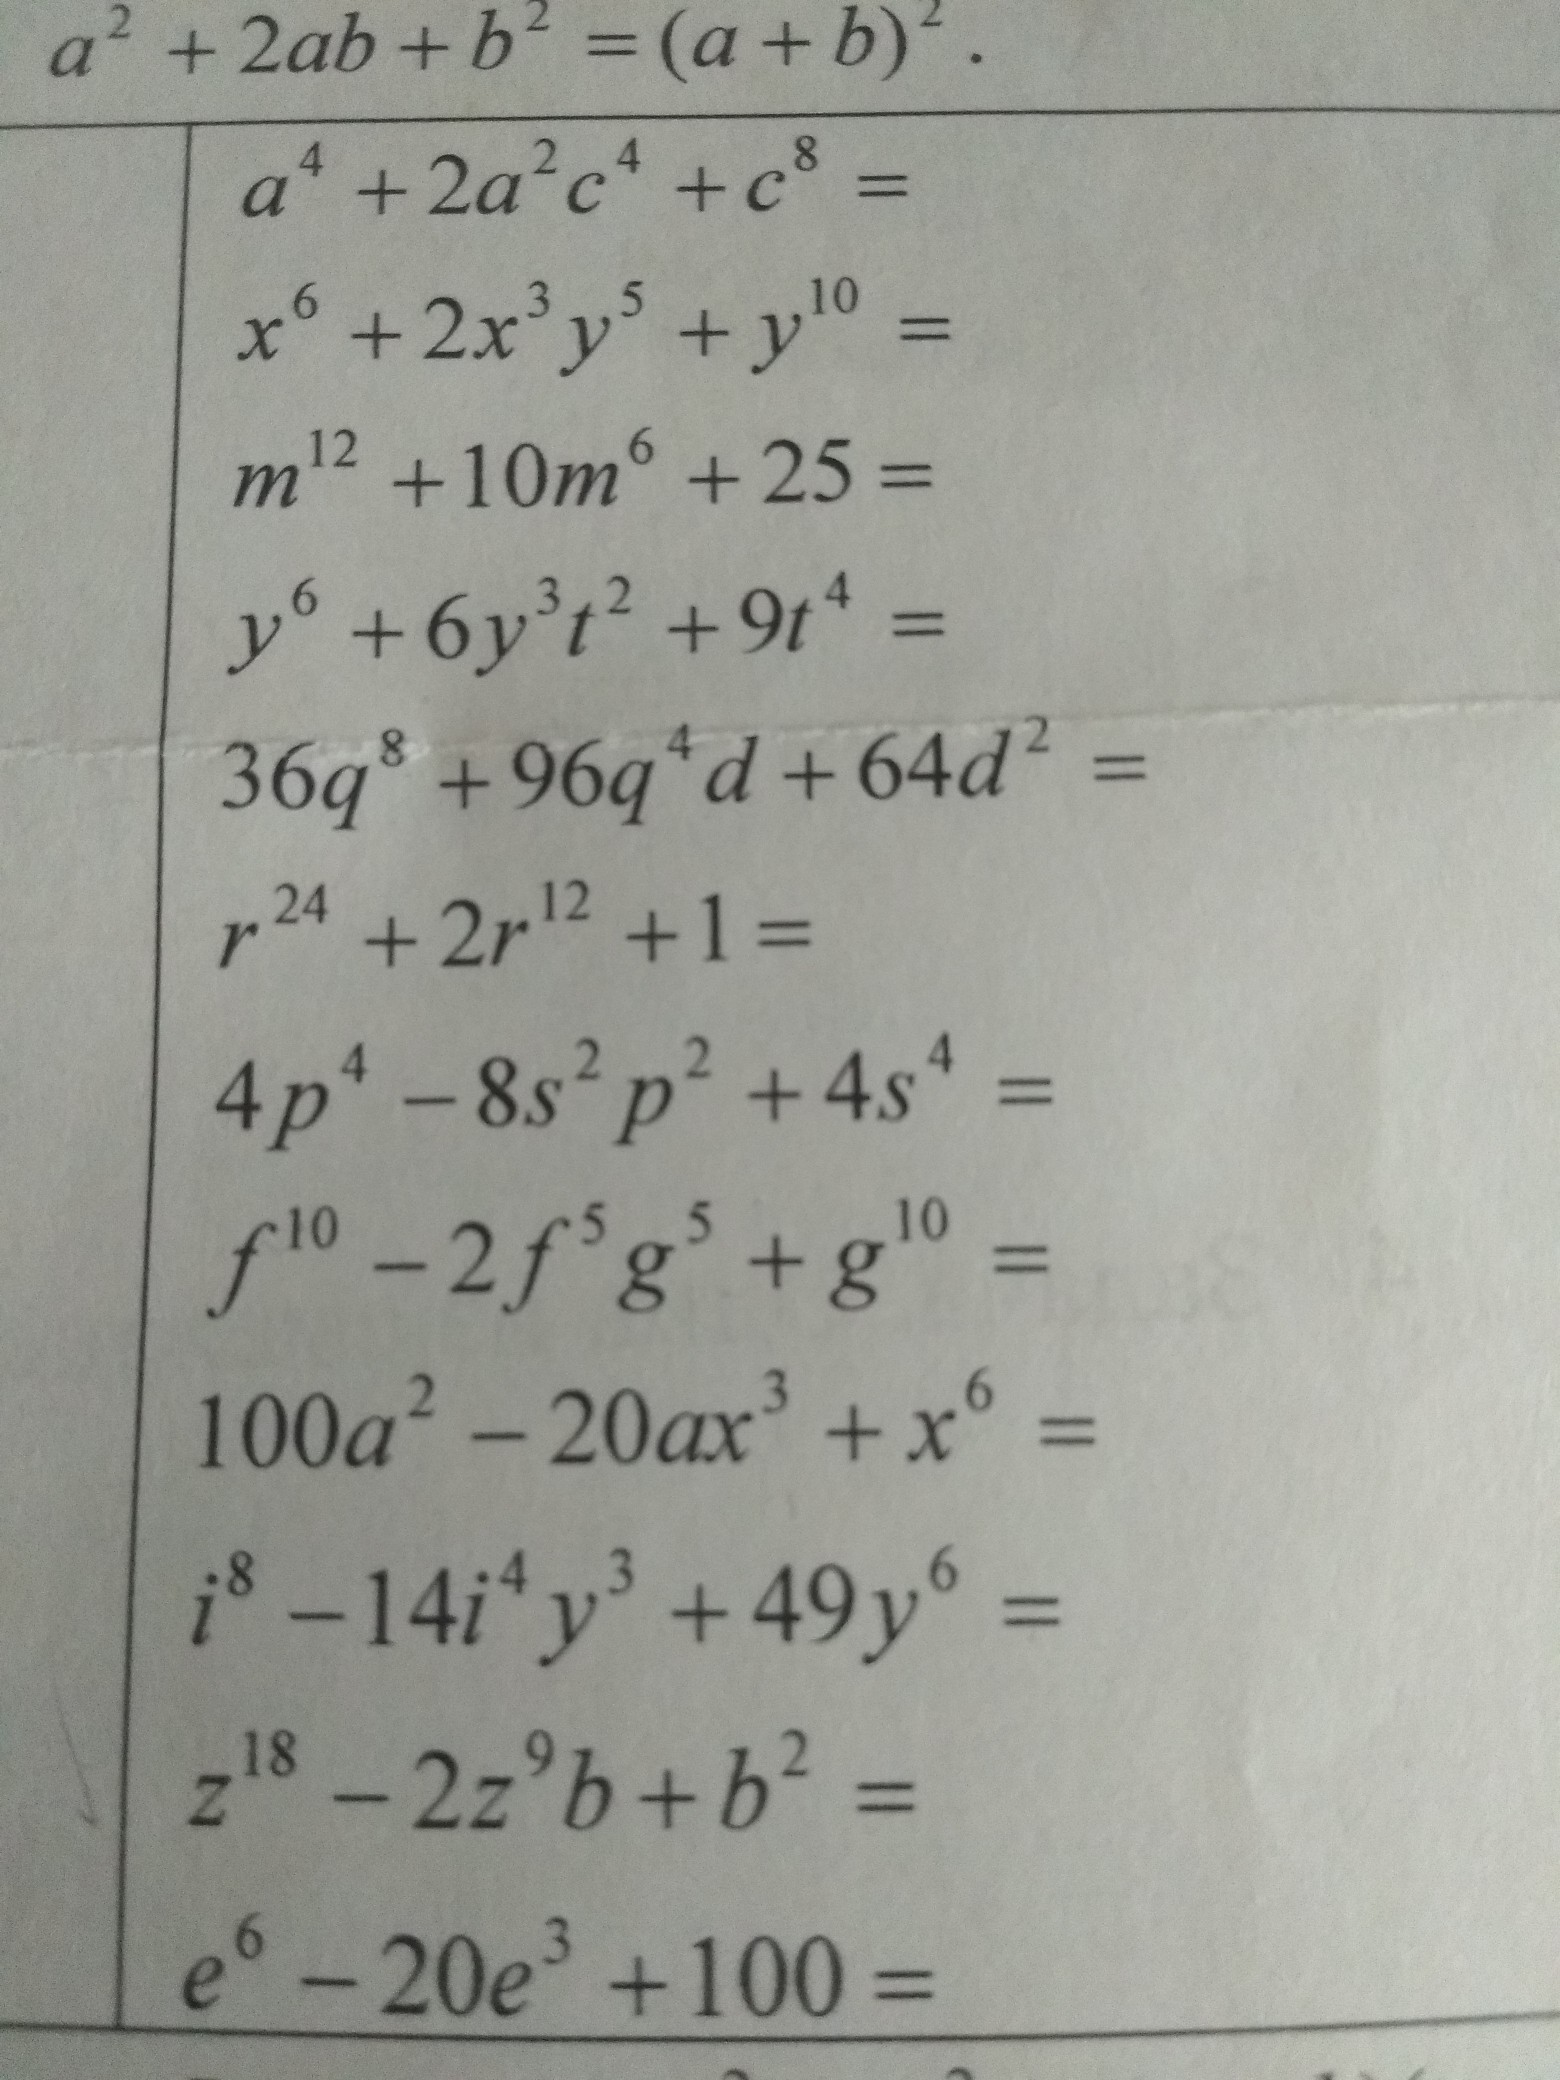 a² + 2ab + b² = (a + b)².
a⁴ + 2a²c⁴ + c⁸ =
x⁶ + 2x³y⁵ + y¹⁰ =
m¹² + 10m⁶ + 25 =
y⁶ + 6y³t² + 9t⁴ =
36q⁸ + 96q⁴d + 64d² =
r²⁴ + 2r¹² + 1 =
4p⁴ − 8s²p² + 4s⁴ =
f¹⁰ − 2f⁵g⁵ + g¹⁰ =
100a² − 20ax³ + x⁶ =
i⁸ − 14i⁴y³ + 49y⁶ =
z¹⁸ − 2z⁹b + b² =
e⁶ − 20e³ + 100 =